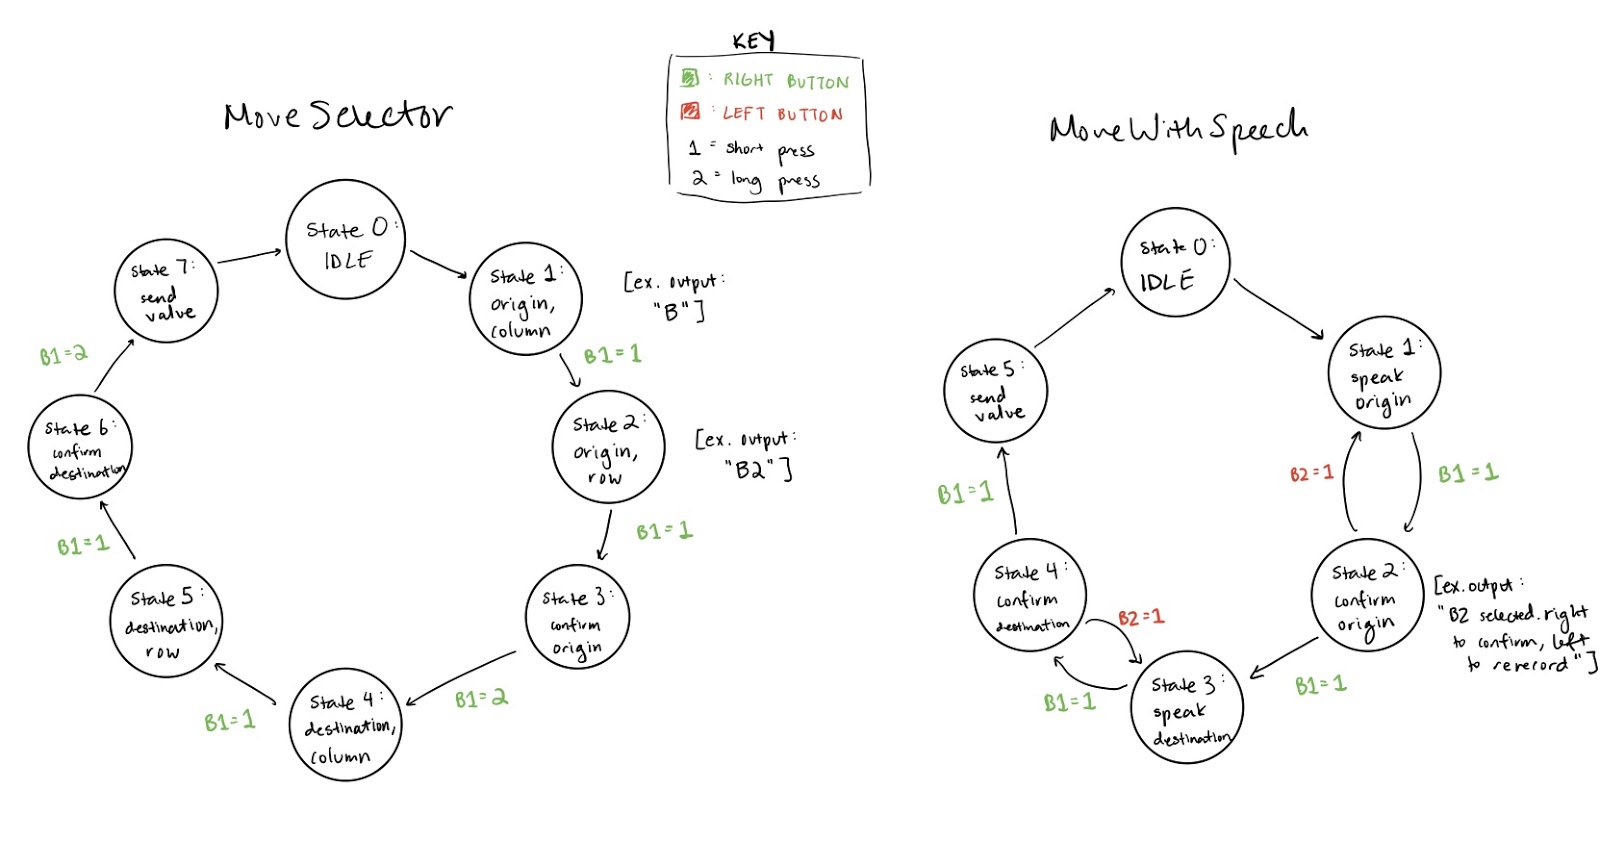 KEY
: RIGHT BUTTON
: LEFT BUTTON
1 = short press
2 = long press
MoveSelector
State 0:
IDLE
State 1:
origin,
column
[ex. output:
"B"]
B1=1
State 2:
origin,
row
[ex. output:
"B2"]
B1=1
State 3:
confirm
origin
B1=2
State 4:
destination,
column
B1=1
State 5:
destination,
row
B1=1
State 6:
confirm
destination
B1=2
State 7:
send
value
MoveWithSpeech
State 0:
IDLE
State 1:
speak
origin
B2=1
B1=1
State 2:
confirm
origin
[ex. output:
"B2 selected. right
to confirm, left
to rerecord"]
B1=1
State 3:
speak
destination
B1=1
B2=1
State 4:
confirm
destination
B1=1
State 5:
send
value